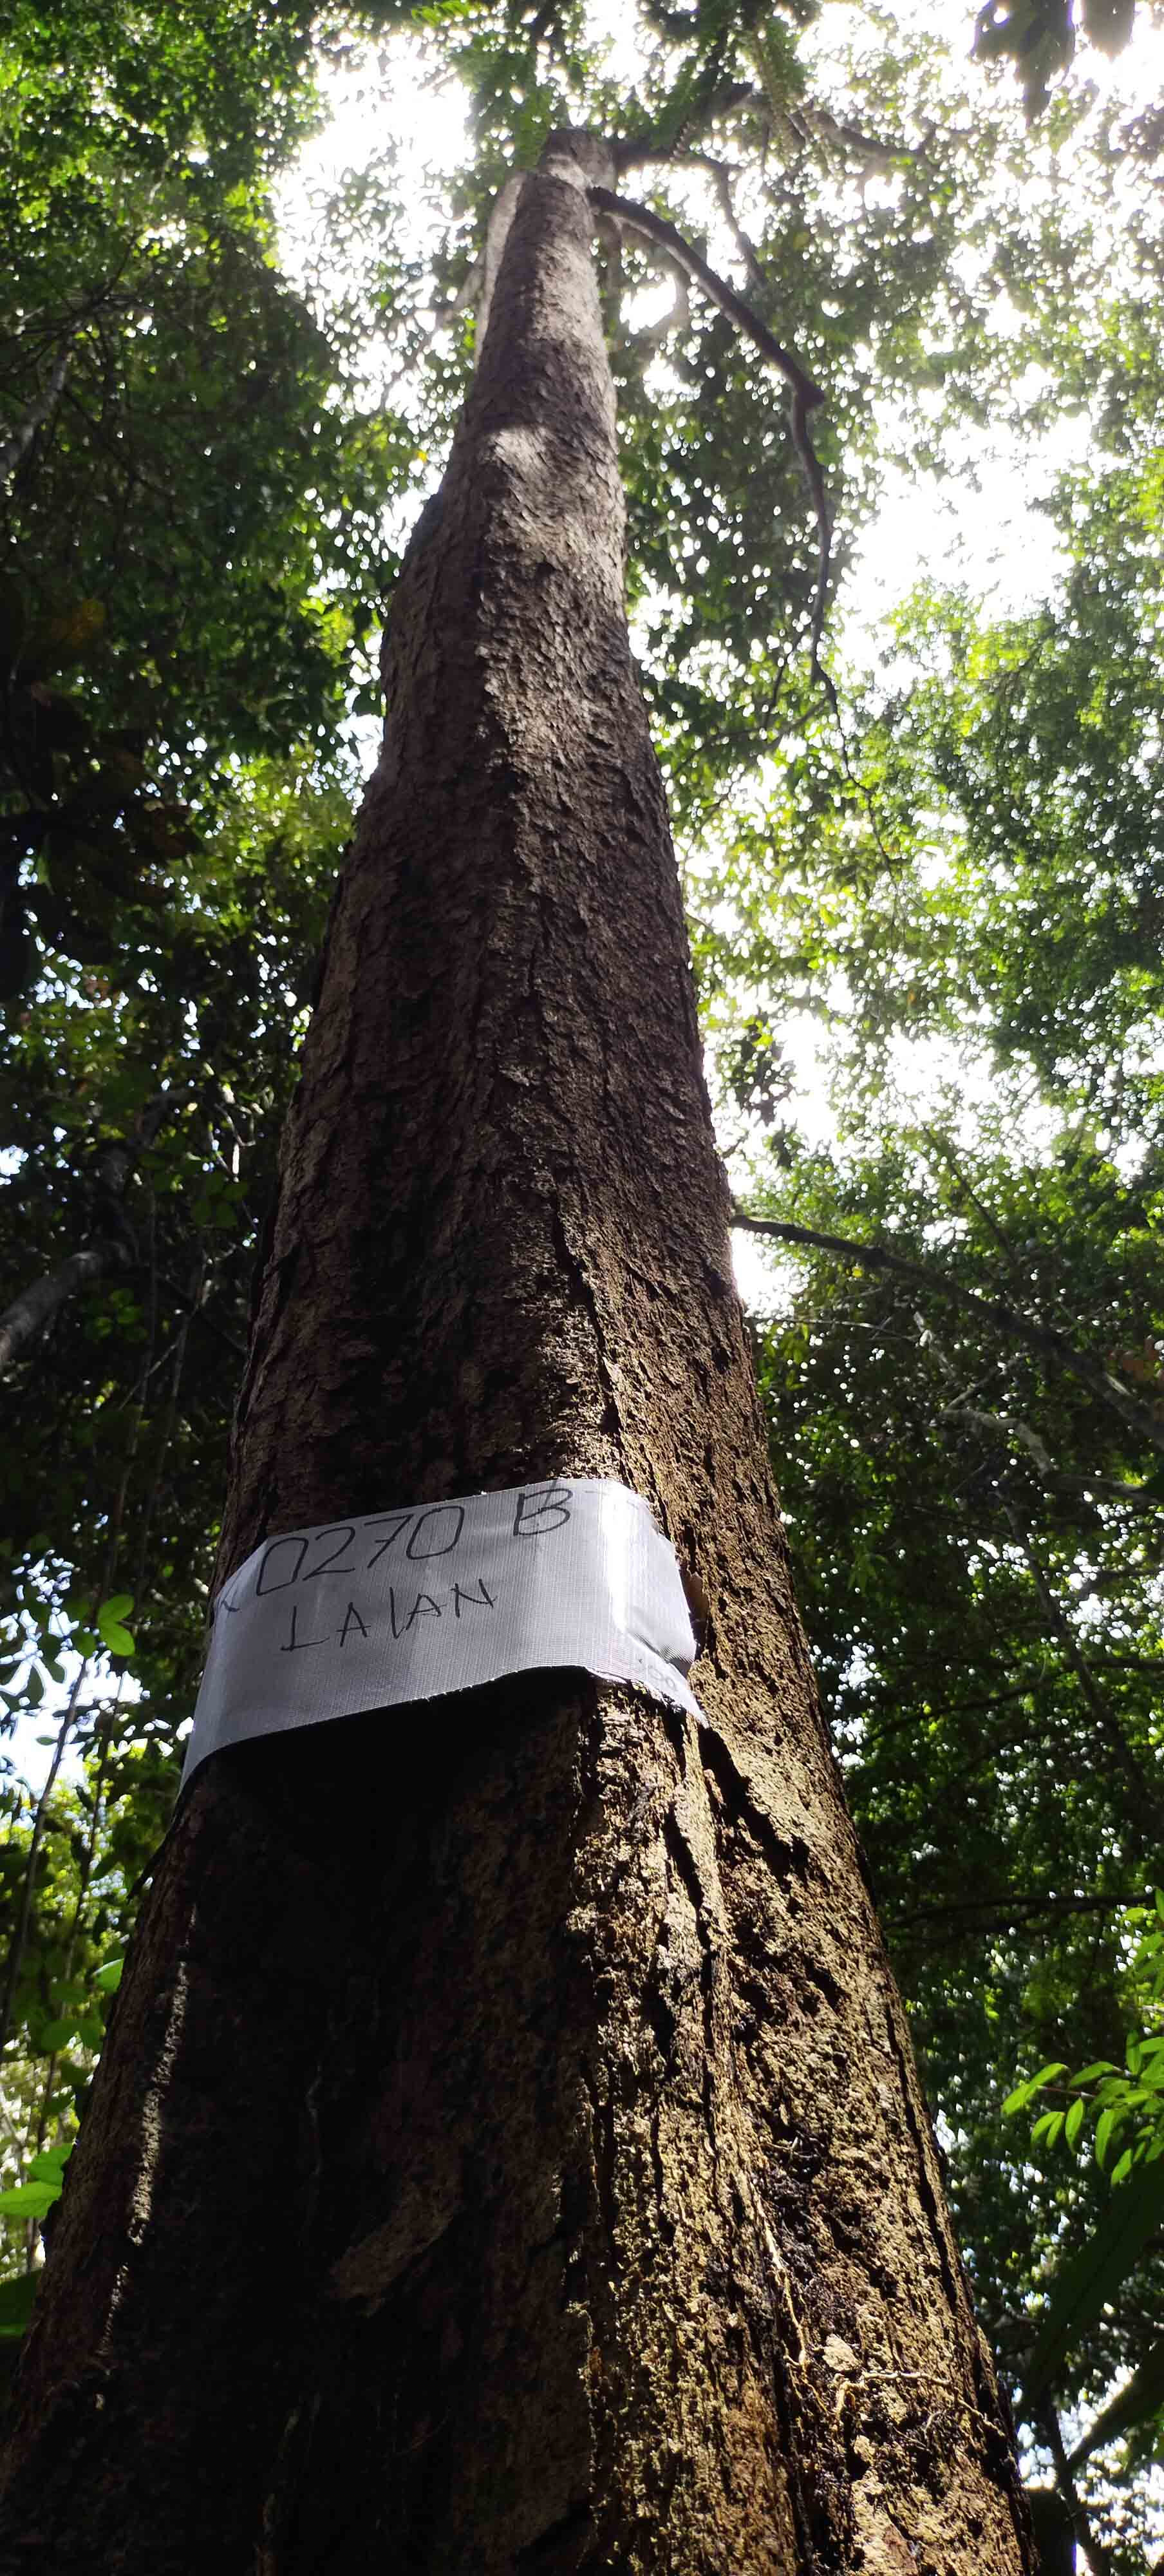 0270 B
LAIAN